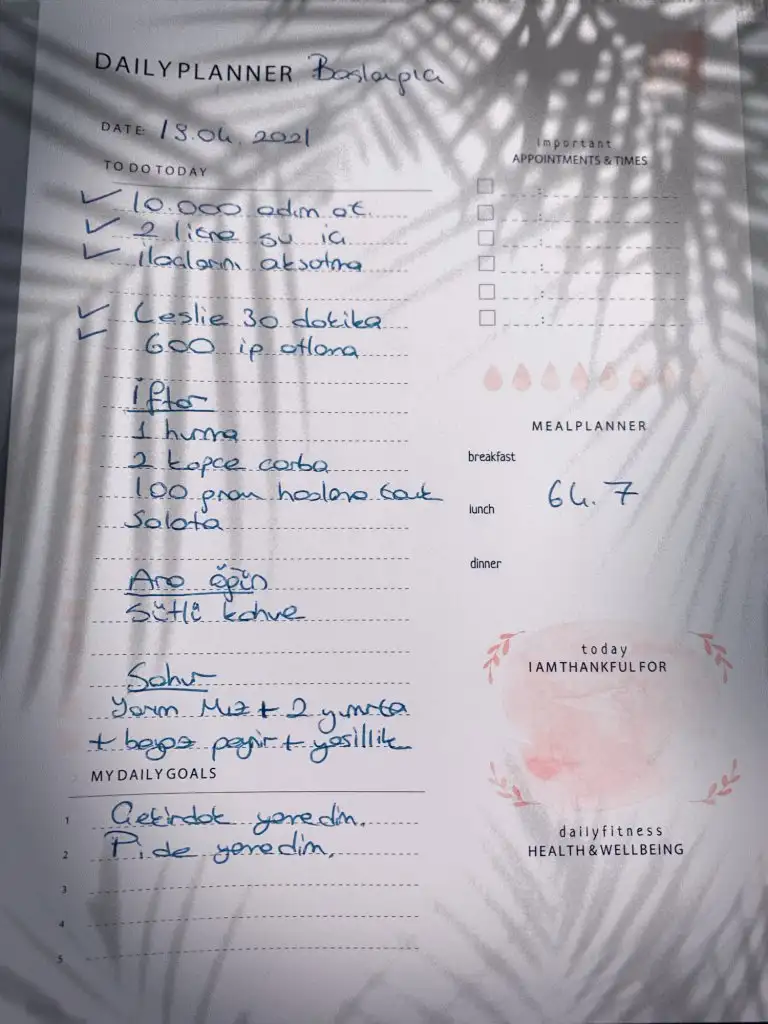 DAILY PLANNER Başlangıç
DATE: 13.04.2021
TO DO TODAY
10.000 adım at.
2 litre su iç
ilaçlarını aksatma
Leslie 30 dakika
600 ip atlama
İftar
1 hurma
2 kepçe çorba
100 gram haşlama tavuk
Salata
Ara öğün
Sütlü kahve
Sahur
Yarım Muz + 2 yumurta
+ beyaz peynir + yeşillik
MY DAILY GOALS
1 Çekirdek yemedim.
2 Pide yemedim.
3
4
5
Important
APPOINTMENTS & TIMES
:
:
:
:
:
:
MEAL PLANNER
breakfast
lunch 64.7
dinner
today
I AM THANKFUL FOR
daily fitness
HEALTH & WELLBEING